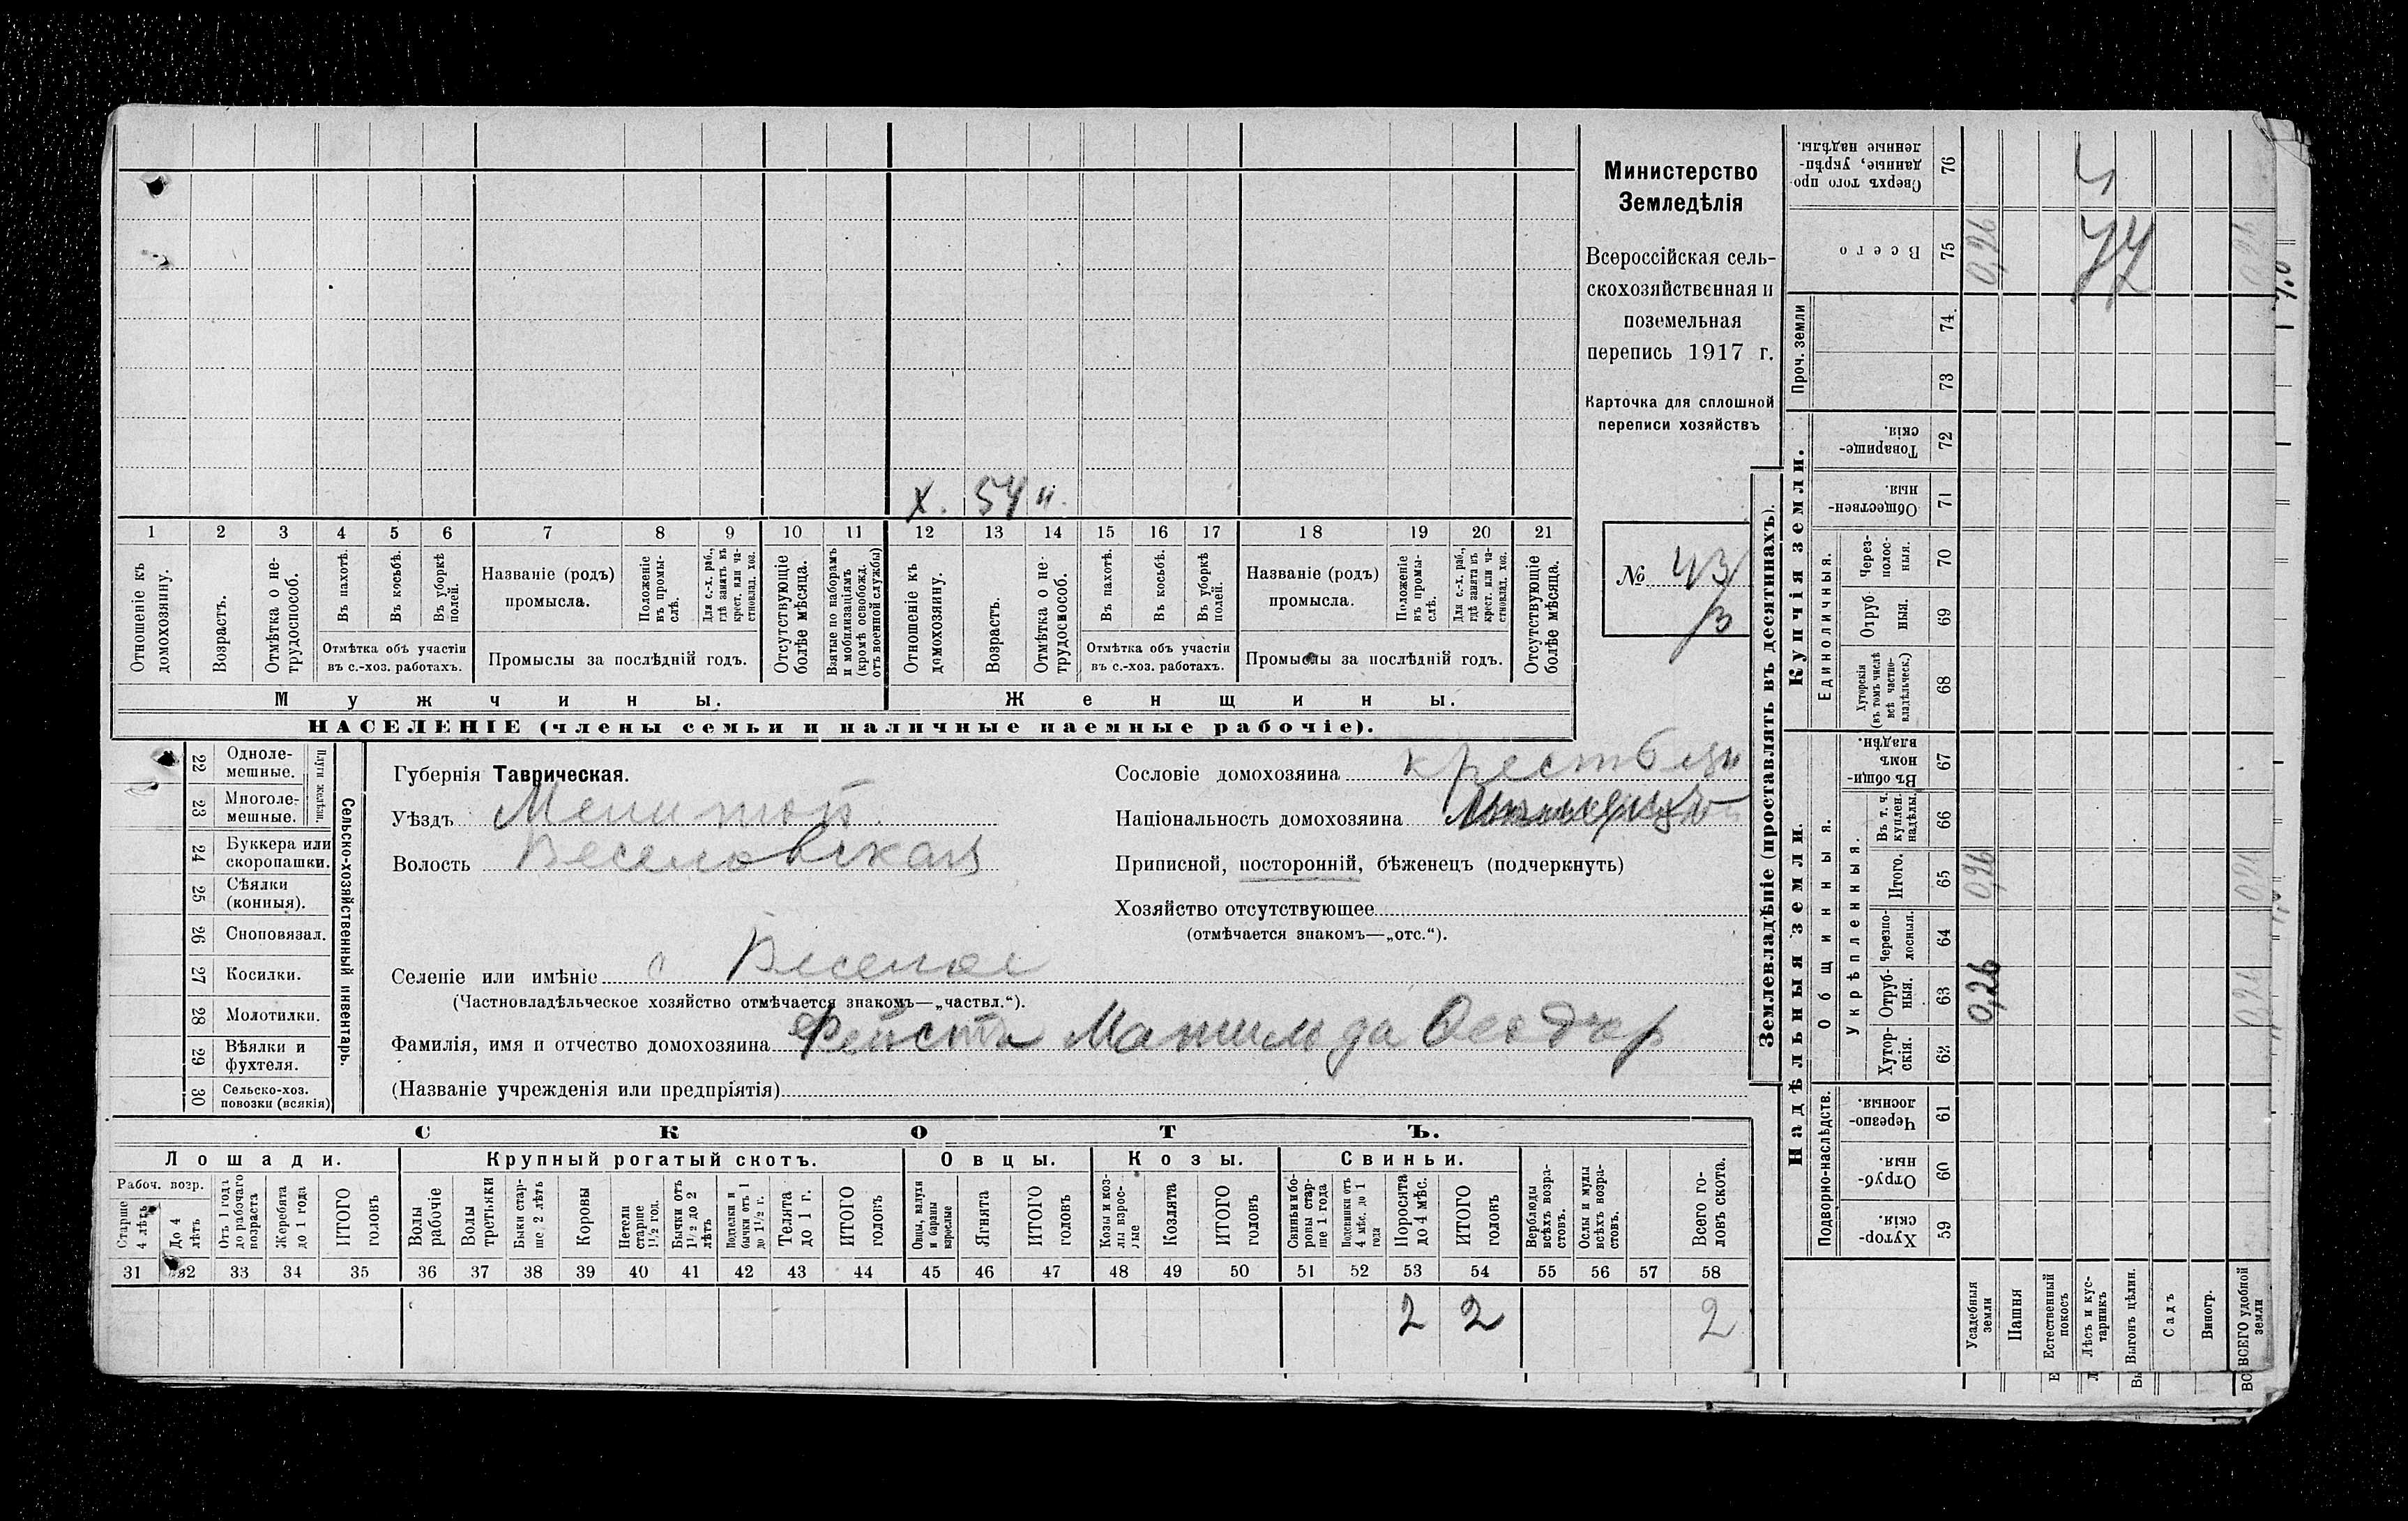 Министерство
Земледѣлія
Всероссійская сель-
скохозяйственная и
поземельная
перепись 1917 г.
Карточка для сплошной
переписи хозяйствъ
№ 43
X. 54 н.
1 2 3 4 5 6 7 8 9 10 11 12 13 14 15 16 17 18 19 20 21
Отношеніе къ домохозяину.
Возрастъ.
Отмѣтка о не-трудоспособ.
Въ пахотѣ.
Въ косьбѣ.
Въ уборкѣ полей.
Отмѣтка объ участіи
въ с.-хоз. работахъ.
Названіе (родъ)
промысла.
Положеніе въ промы-слѣ.
Для с.-х. раб., гдѣ занятъ въ крест. или ча-стновлад. хоз.
Промыслы за послѣдній годъ.
Отсутствующіе болѣе мѣсяца.
Взятые по наборамъ и мобилизаціямъ (кромѣ освобожд. отъ военной службы)
Отношеніе къ домохозяину.
Возрастъ.
Отмѣтка о не-трудоспособ.
Въ пахотѣ.
Въ косьбѣ.
Въ уборкѣ полей.
Отмѣтка объ участіи
въ с.-хоз. работахъ.
Названіе (родъ)
промысла.
Положеніе въ промы-слѣ.
Для с.-х. раб., гдѣ занята въ крест. или ча-стновлад. хоз.
Промыслы за послѣдній годъ.
Отсутствующіе болѣе мѣсяца.
Мужчины. Женщины.
НАСЕЛЕНІЕ (члены семьи и наличные наемные рабочіе).
22 Одноле-мешные.
23 Многоле-мешные.
Плуги желѣзн.
24 Буккера или скоропашки.
25 Сѣялки (конныя).
26 Сноповязал.
27 Косилки.
28 Молотилки.
29 Вѣялки и фухтеля.
30 Сельско-хоз. повозки (всякія)
Сельско-хозяйственный инвентарь.
Губернія Таврическая.
Уѣздъ Мелитоп.
Волость Веселовская
Селеніе или имѣніе с Веселое
(Частновладѣльческое хозяйство отмѣчается знакомъ—„частвл.“).
Фамилія, имя и отчество домохозяина Фейста Матильда Феодор
(Названіе учрежденія или предпріятія)
Сословіе домохозяина
Національность домохозяина
Приписной, посторонній, бѣженецъ (подчеркнуть)
Хозяйство отсутствующее
(отмѣчается знакомъ—„отс.“).
СКОТЪ.
Лошади. Крупный рогатый скотъ. Овцы. Козы. Свиньи.
Рабоч. возр.
Старше 4 лѣтъ
До 4 лѣтъ
Отъ 1 года до рабочаго возраста
Жеребята до 1 года
ИТОГО головъ
Волы рабочіе
Волы третьяки
Быки стар-ше 2 лѣтъ
Коровы
Нетели старше 1½ год.
Бычки отъ 1½ до 2 лѣтъ
Подтелки и бычки отъ 1 до 1½ г.
Телята до 1 г.
ИТОГО головъ
Овцы, валухи и бараны взрослые
Ягнята
ИТОГО головъ
Козы и коз-лы взрос-лые
Козлята
ИТОГО головъ
Свиньи и бо-ровы стар-ше 1 года
Подсвинки отъ 4 мѣс. до 1 года
Поросята до 4 мѣс.
ИТОГО головъ
Верблюды всѣхъ возра-стовъ.
Ослы и мулы всѣхъ возра-стовъ.
Всего го-ловъ скота.
31 32 33 34 35 36 37 38 39 40 41 42 43 44 45 46 47 48 49 50 51 52 53 54 55 56 57 58
2 2 2
Землевладѣніе (проставлять въ десятинахъ).
Надѣльныя земли. Купчія земли. Проч. земли
Подворно-наслѣдств.
Общинныя.
Укрѣпленныя.
Единоличныя.
Сверхъ того про-данные, укрѣп-ленные надѣлы. 76
Всего 75 0,26
74
73
Товарище-скія. 72
Обществен-ныя. 71
Через-полос-ныя. 70
Отруб-ныя. 69
Хуторскія (въ томъ числѣ всѣ частно-владѣльческ.) 68
Въ общи-номъ владѣн. 67
Въ т. ч. куплен. надѣлы. 66
Итого. 65 0,26
Черезпо-лосныя. 64
Отруб-ныя. 63 0,26
Хутор-скія. 62
Черезпо-лосныя. 61
Отруб-ныя. 60
Хутор-скія. 59
Усадебныя земли
Пашня
Естественный покосъ
Лѣсъ и кус-тарникъ
Выгонъ цѣлин.
Садъ
Виногр.
ВСЕГО удобной земли